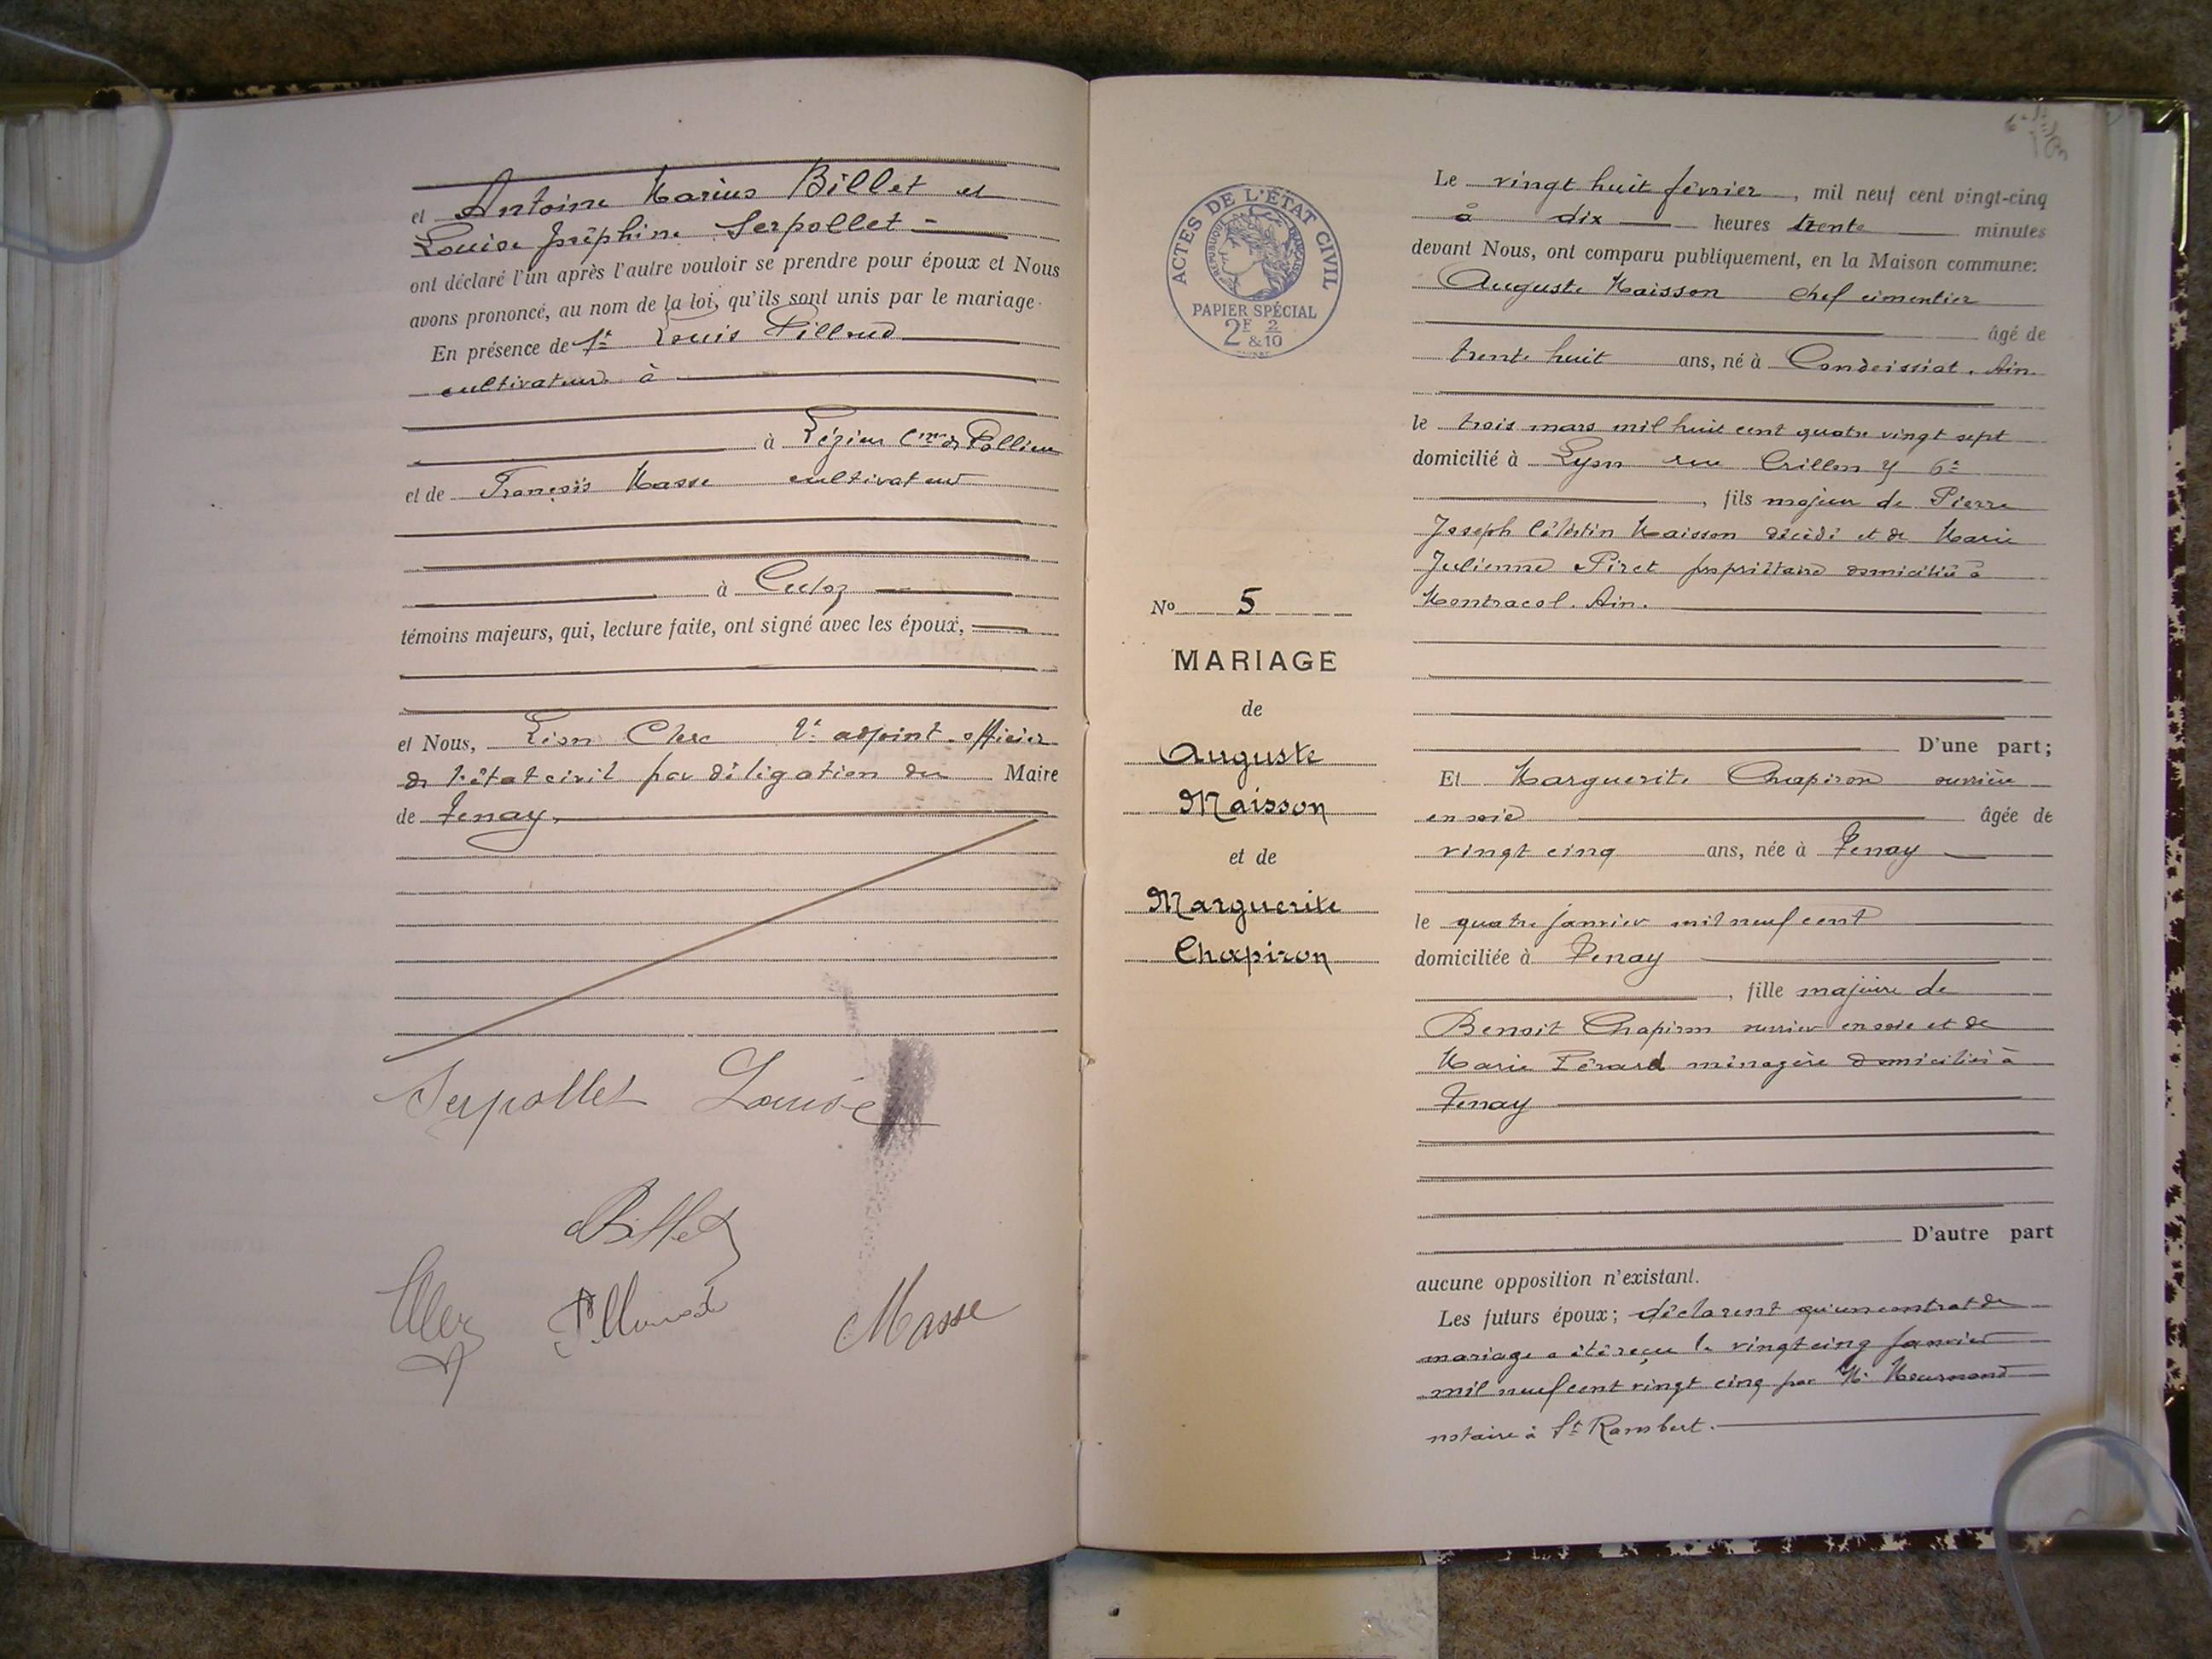 et Antoine Marius Billet et
Louise Joséphine Serpollet
ont déclaré l'un après l'autre vouloir se prendre pour époux et Nous
avons prononcé, au nom de la loi, qu'ils sont unis par le mariage.
En présence de 1º Louis Pilloud
cultivateur à
à Lézieu Cne de Pollieu
et de François Masse cultivateur
à Culoz
témoins majeurs, qui, lecture faite, ont signé avec les époux,
et Nous, Léon Clerc adjoint officier
de l'état civil par délégation du Maire
de Tenay.
Serpollet Louise
Billet
Pilloud
Masse
ACTES DE L'ÉTAT CIVIL
RÉPUBLIQUE FRANÇAISE
PAPIER SPÉCIAL
2F & 2/10
No 5
MARIAGE
de
Auguste
Maisson
et de
Marguerite
Chapiron
Le vingt huit février, mil neuf cent vingt-cinq
à dix heures trente minutes
devant Nous, ont comparu publiquement, en la Maison commune:
Auguste Maisson chef cimentier
âgé de
trente huit ans, né à Condeissiat. Ain.
le trois mars mil huit cent quatre vingt sept
domicilié à Lyon rue Crillon
, fils majeur de Pierre
Joseph Célestin Maisson décédé et de Marie
Julienne Piret propriétaire domiciliée à
Montracol. Ain.
D'une part;
Et Marguerite Chapiron ouvrière
en soie âgée de
vingt cinq ans, née à Tenay
le quatre janvier mil neuf cent
domiciliée à Tenay
, fille majeure de
Benoit Chapiron ouvrier en soie et de
Marie Pérard ménagère domiciliés à
Tenay
D'autre part
aucune opposition n'existant.
Les futurs époux; déclarent qu'un contrat de
mariage a été reçu le vingt cinq janvier
mil neuf cent vingt cinq par Me
notaire à St Rambert.